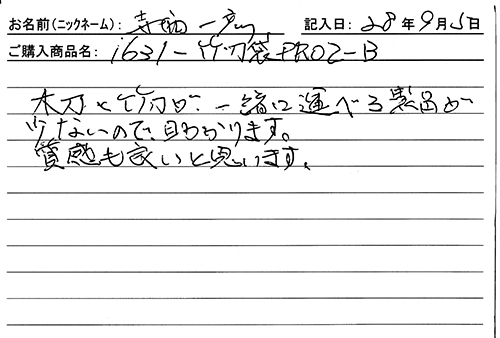 お名前(ニックネーム): 寺 一
記入日: 28年9月5日
ご購入商品名: 1631-竹刀袋PRO2-B
木刀と竹刀が、一緒に運べる製品が
少ないので、助かります。
質感も良いと思います。